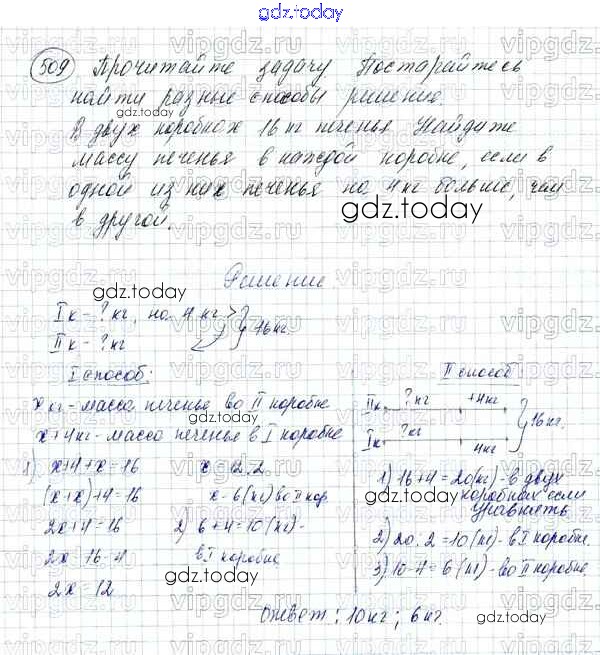 gdz.today
509 Прочитайте задачу Постарайтесь
найти разные способы решение.
В двух коробках 16 кг печенья Найдите
массу печенья в каждой коробке, если в
одной из них печенья на 4 кг больше, чем
в другой.
gdz.today
Решение.
gdz.today
I к - ? кг, на 4 кг >
II к - ? кг
16 кг.
I способ:
x кг - масса печенье во II коробке
x+4 кг - масса печенье в I коробке
1) x+4+x=16
(x+x)+4=16
2x+4=16
2x=16-4
2x=12
x=12:2
x=6(кг) во II кор.
2) 6+4=10(кг)-
в I коробке
gdz.today
II способ
II к ? кг +4кг
I к ? кг 4кг
16 кг.
gdz.today
1) 16+4=20(кг)-в двух
коробках если
уравнять
2) 20:2=10(кг)-в I коробке.
3) 10-4=6(кг)-во II коробке.
gdz.today
Ответ: 10кг; 6кг.
gdz.today